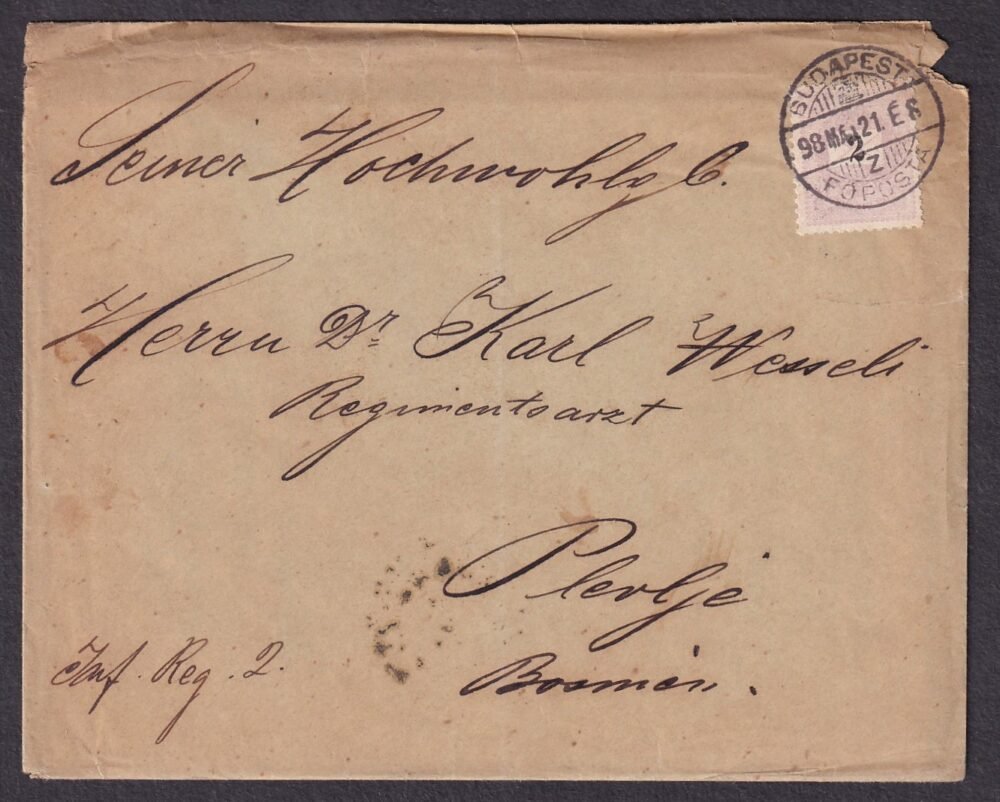 BUDAPEST
98 MÁJ 21. É 8
2
Z
FŐPOSTA
Seiner Hochwohlg b.
Herrn Dr Karl Wesseli
Regimentsarzt
Plevlje
Inf. Reg. 2. Bosnien.